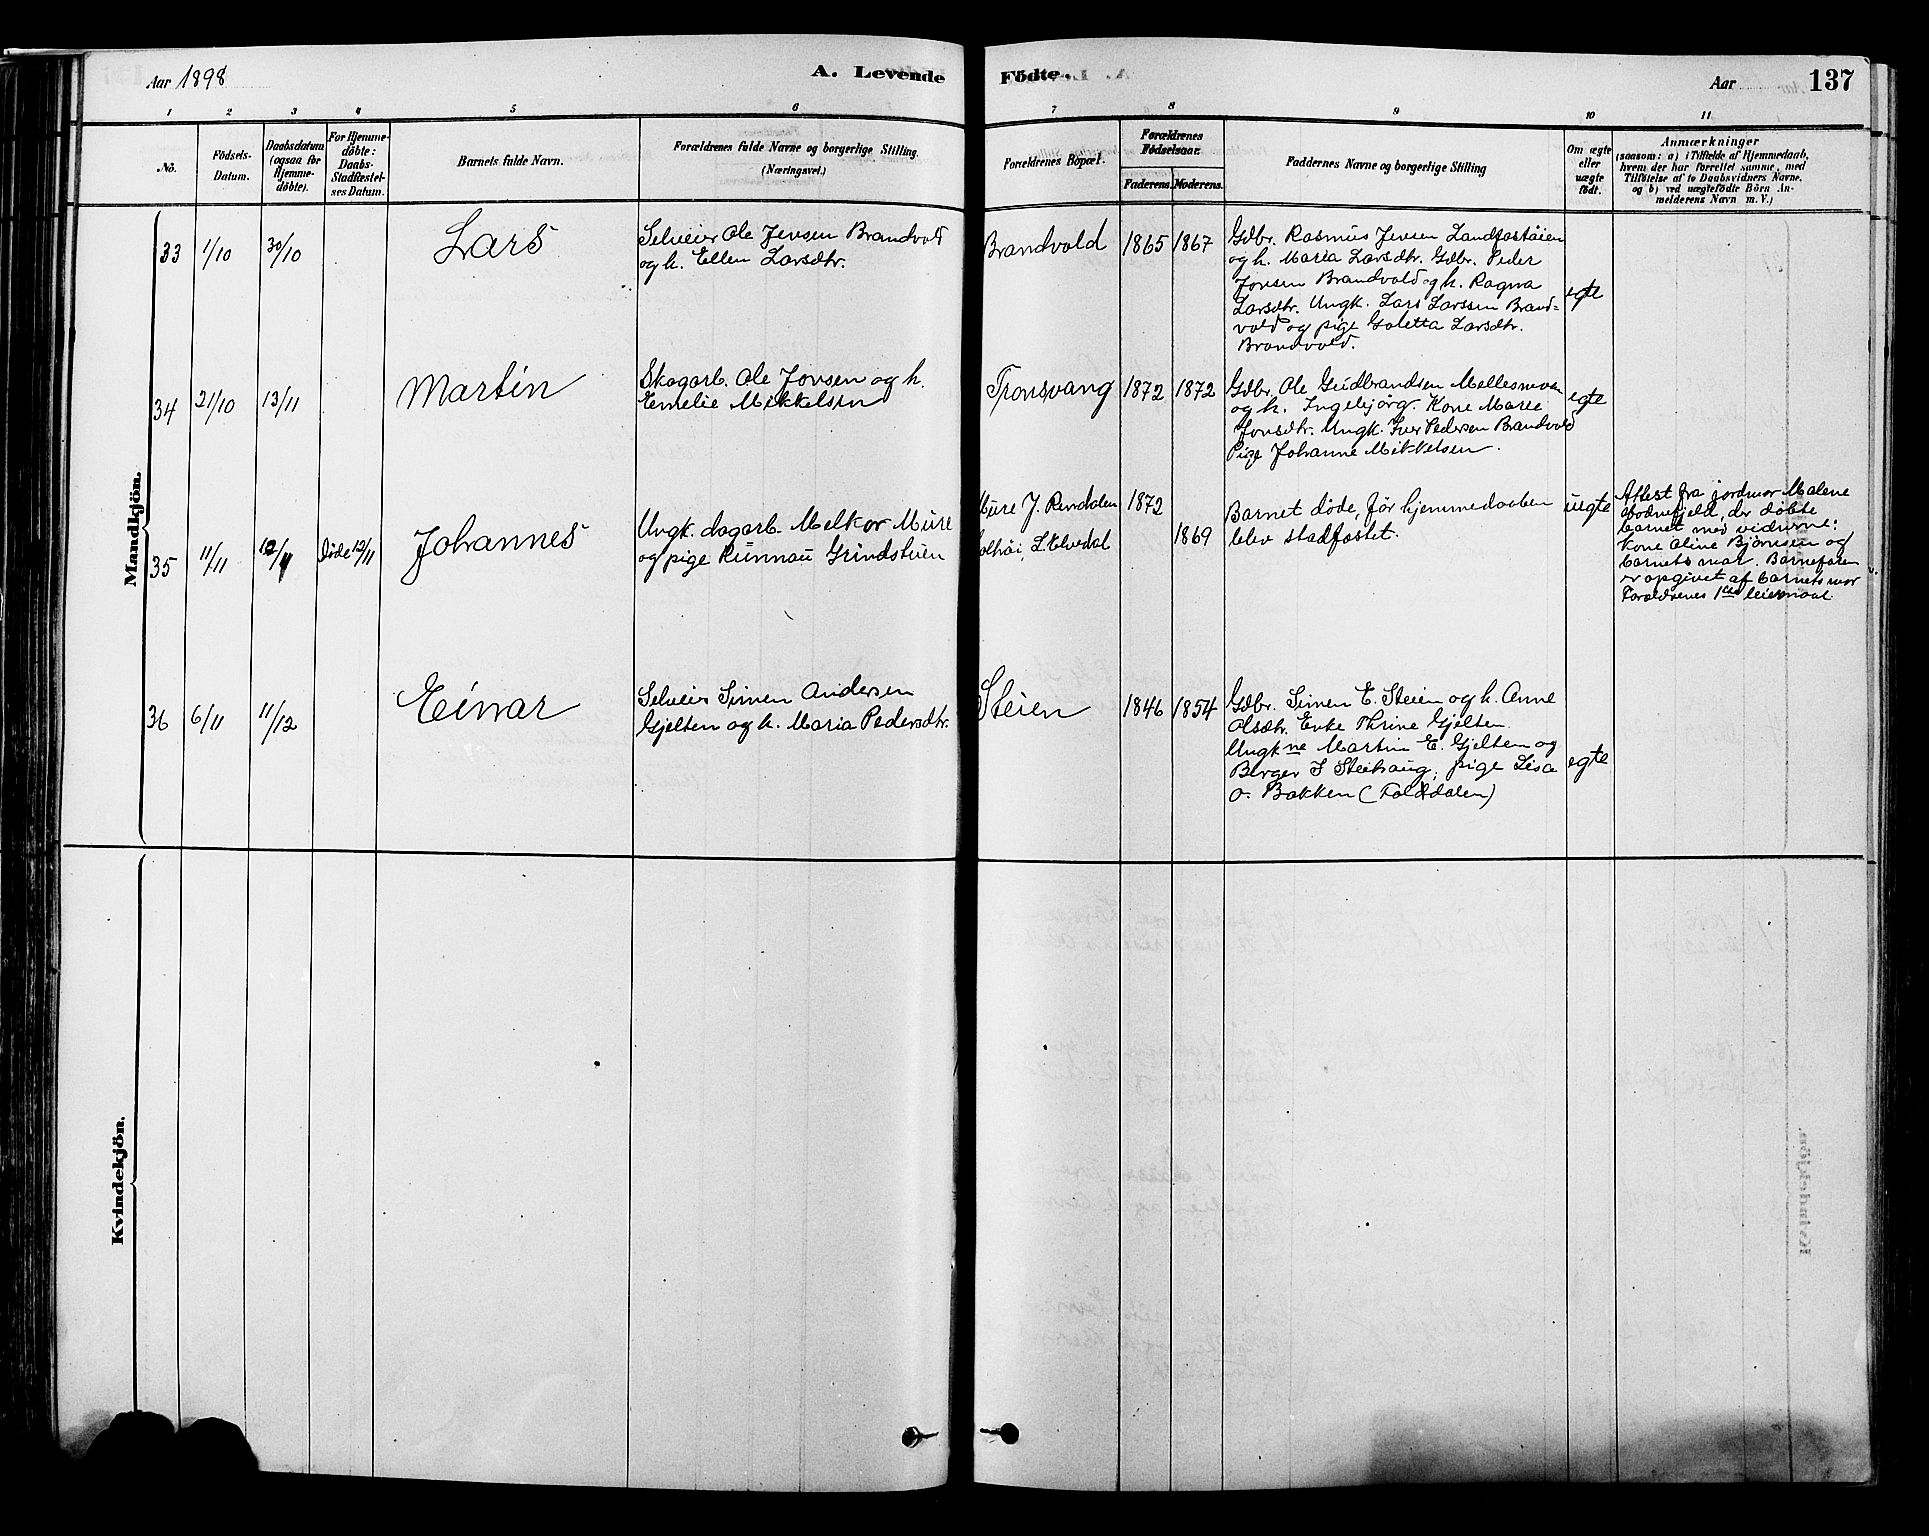 Aar 1898
A. Levende
Födte.
Aar
137
1 2 3 4 5 6 7 8 9 10 11
No.
Födsels-
Datum.
Daabsdatum
(ogsaa for
Hjemme-
döbte).
For Hjemme-
döbte:
Daabs-
Stadfæstel-
ses Datum.
Barnets fulde Navn.
Forældrenes fulde Navne og borgerlige Stilling.
(Næringsvei.)
Forældrenes Bopæl.
Forældrenes
Födselsaar.
Faderens. Moderens.
Faddernes Navne og borgerlige Stilling
Om ægte
eller
uægte
födt.
Anmærkninger
(saasom: a) i Tilfælde af Hjemmedaab,
hvem der har forrettet samme, med
Tilföielse af to Daabsvidners Navne,
og b) ved uægtefödte Börn An-
melderens Navn m. V.)
Mandkjön.
33 1/10 30/10
Lars
Selveier Ole Jensen Brandvold
og h. Ellen Larsdtr.
Brandvold 1865 1867
Gdbr. Rasmus Jensen
og h. Maria Larsdtr. Gdbr. Peder
Jonsen Brandvold og h. Ragna
Larsdtr. Ungk. Lars Larssen Brand=
vold og pige Goletta Larsdtr.
Brandvold.
egte
34 21/10 13/11
Martin
Skogarb. Ole Jonsen og h.
Emelie Mikkelsen
Tronsvang 1872 1872
Gdbr. Ole Gudbrandsen
og h. Ingebjörg. Kone Marie
Jonsdtr. Ungk. Iver Pedersen Brandvold
Pige Johanne Mikkelsen.
egte
35 11/11 12/11 Døde 12/11
Johannes
Ungk. dagarb. Melkor Mure
og pige Runnau Grindstuen
Mure J. Rendalen 1872
L. Elvedal 1869
Barnet døde, før hjemmedaaben
blev stadfæstet.
uegte
Attest fra jordmor Malene
der døbte
barnet med vidnerne:
Kone Oline Bjørnsen og
barnets mor. Barnefaren
er opgivet af barnets mor
Forældrenes 1ste leiermaal.
36 6/11 11/12
Einar
Selveier Simen Andersen
Gjelten og h. Maria Pedersdtr.
Steien 1846 1854
Gdbr. Simen E. Steien og h. Anne
Olsdtr. Enke Thrine Gjelten.
Ungkne Martin E. Gjelten og
Berger S Steihaug, pige Lisa
O. Bakken (Folldalen)
egte
Kvindekjön.